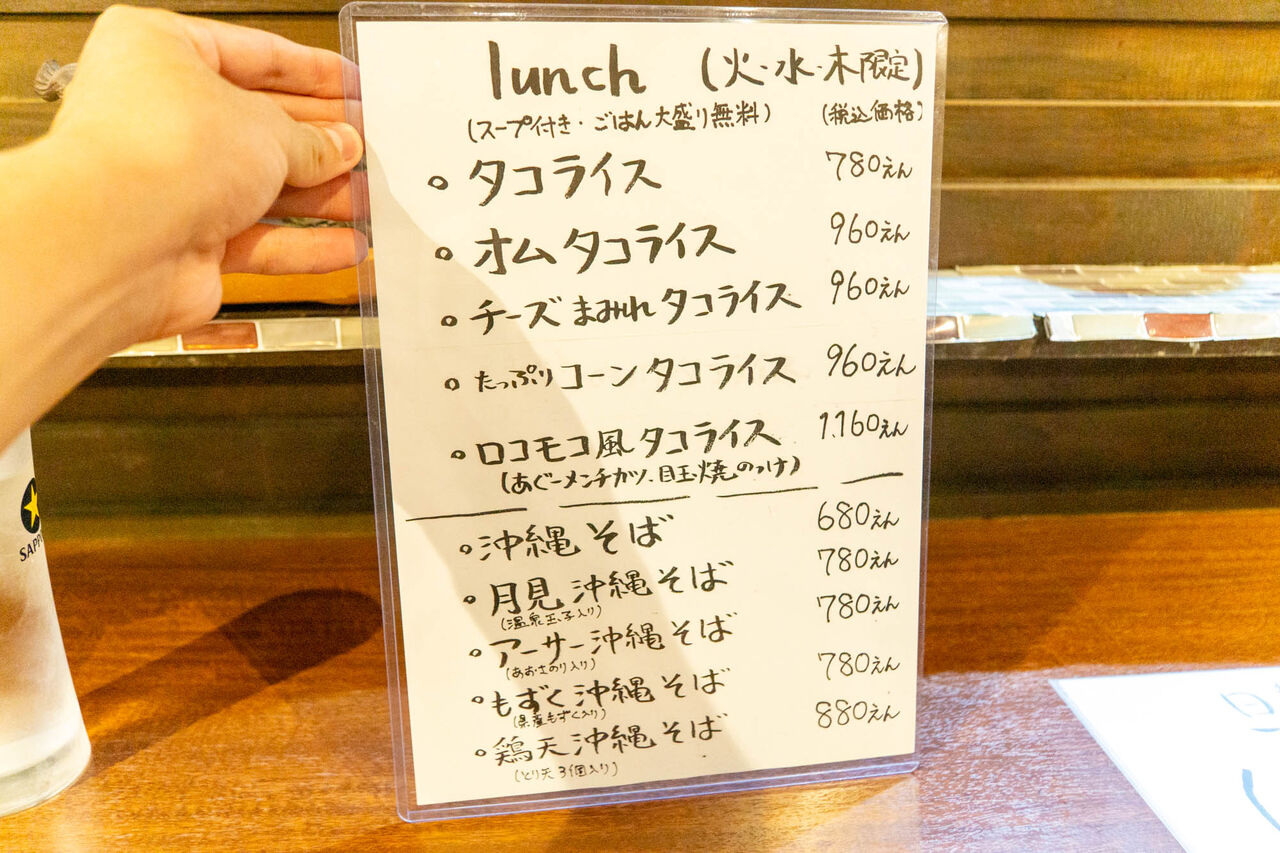 lunch (火・水・木限定)
(スープ付き・ごはん大盛り無料) (税込価格)
タコライス 780えん
オムタコライス 960えん
チーズまみれタコライス 960えん
たっぷりコーンタコライス 960えん
ロコモコ風タコライス 1.160えん
(あぐーメンチカツ、目玉焼のっけ)
沖縄そば 680えん
月見沖縄そば 780えん
(温泉玉子入り)
アーサー沖縄そば 780えん
(あおさのり入り)
もずく沖縄そば 780えん
(県産もずく入り)
鶏天沖縄そば 880えん
(とり天3個入り)